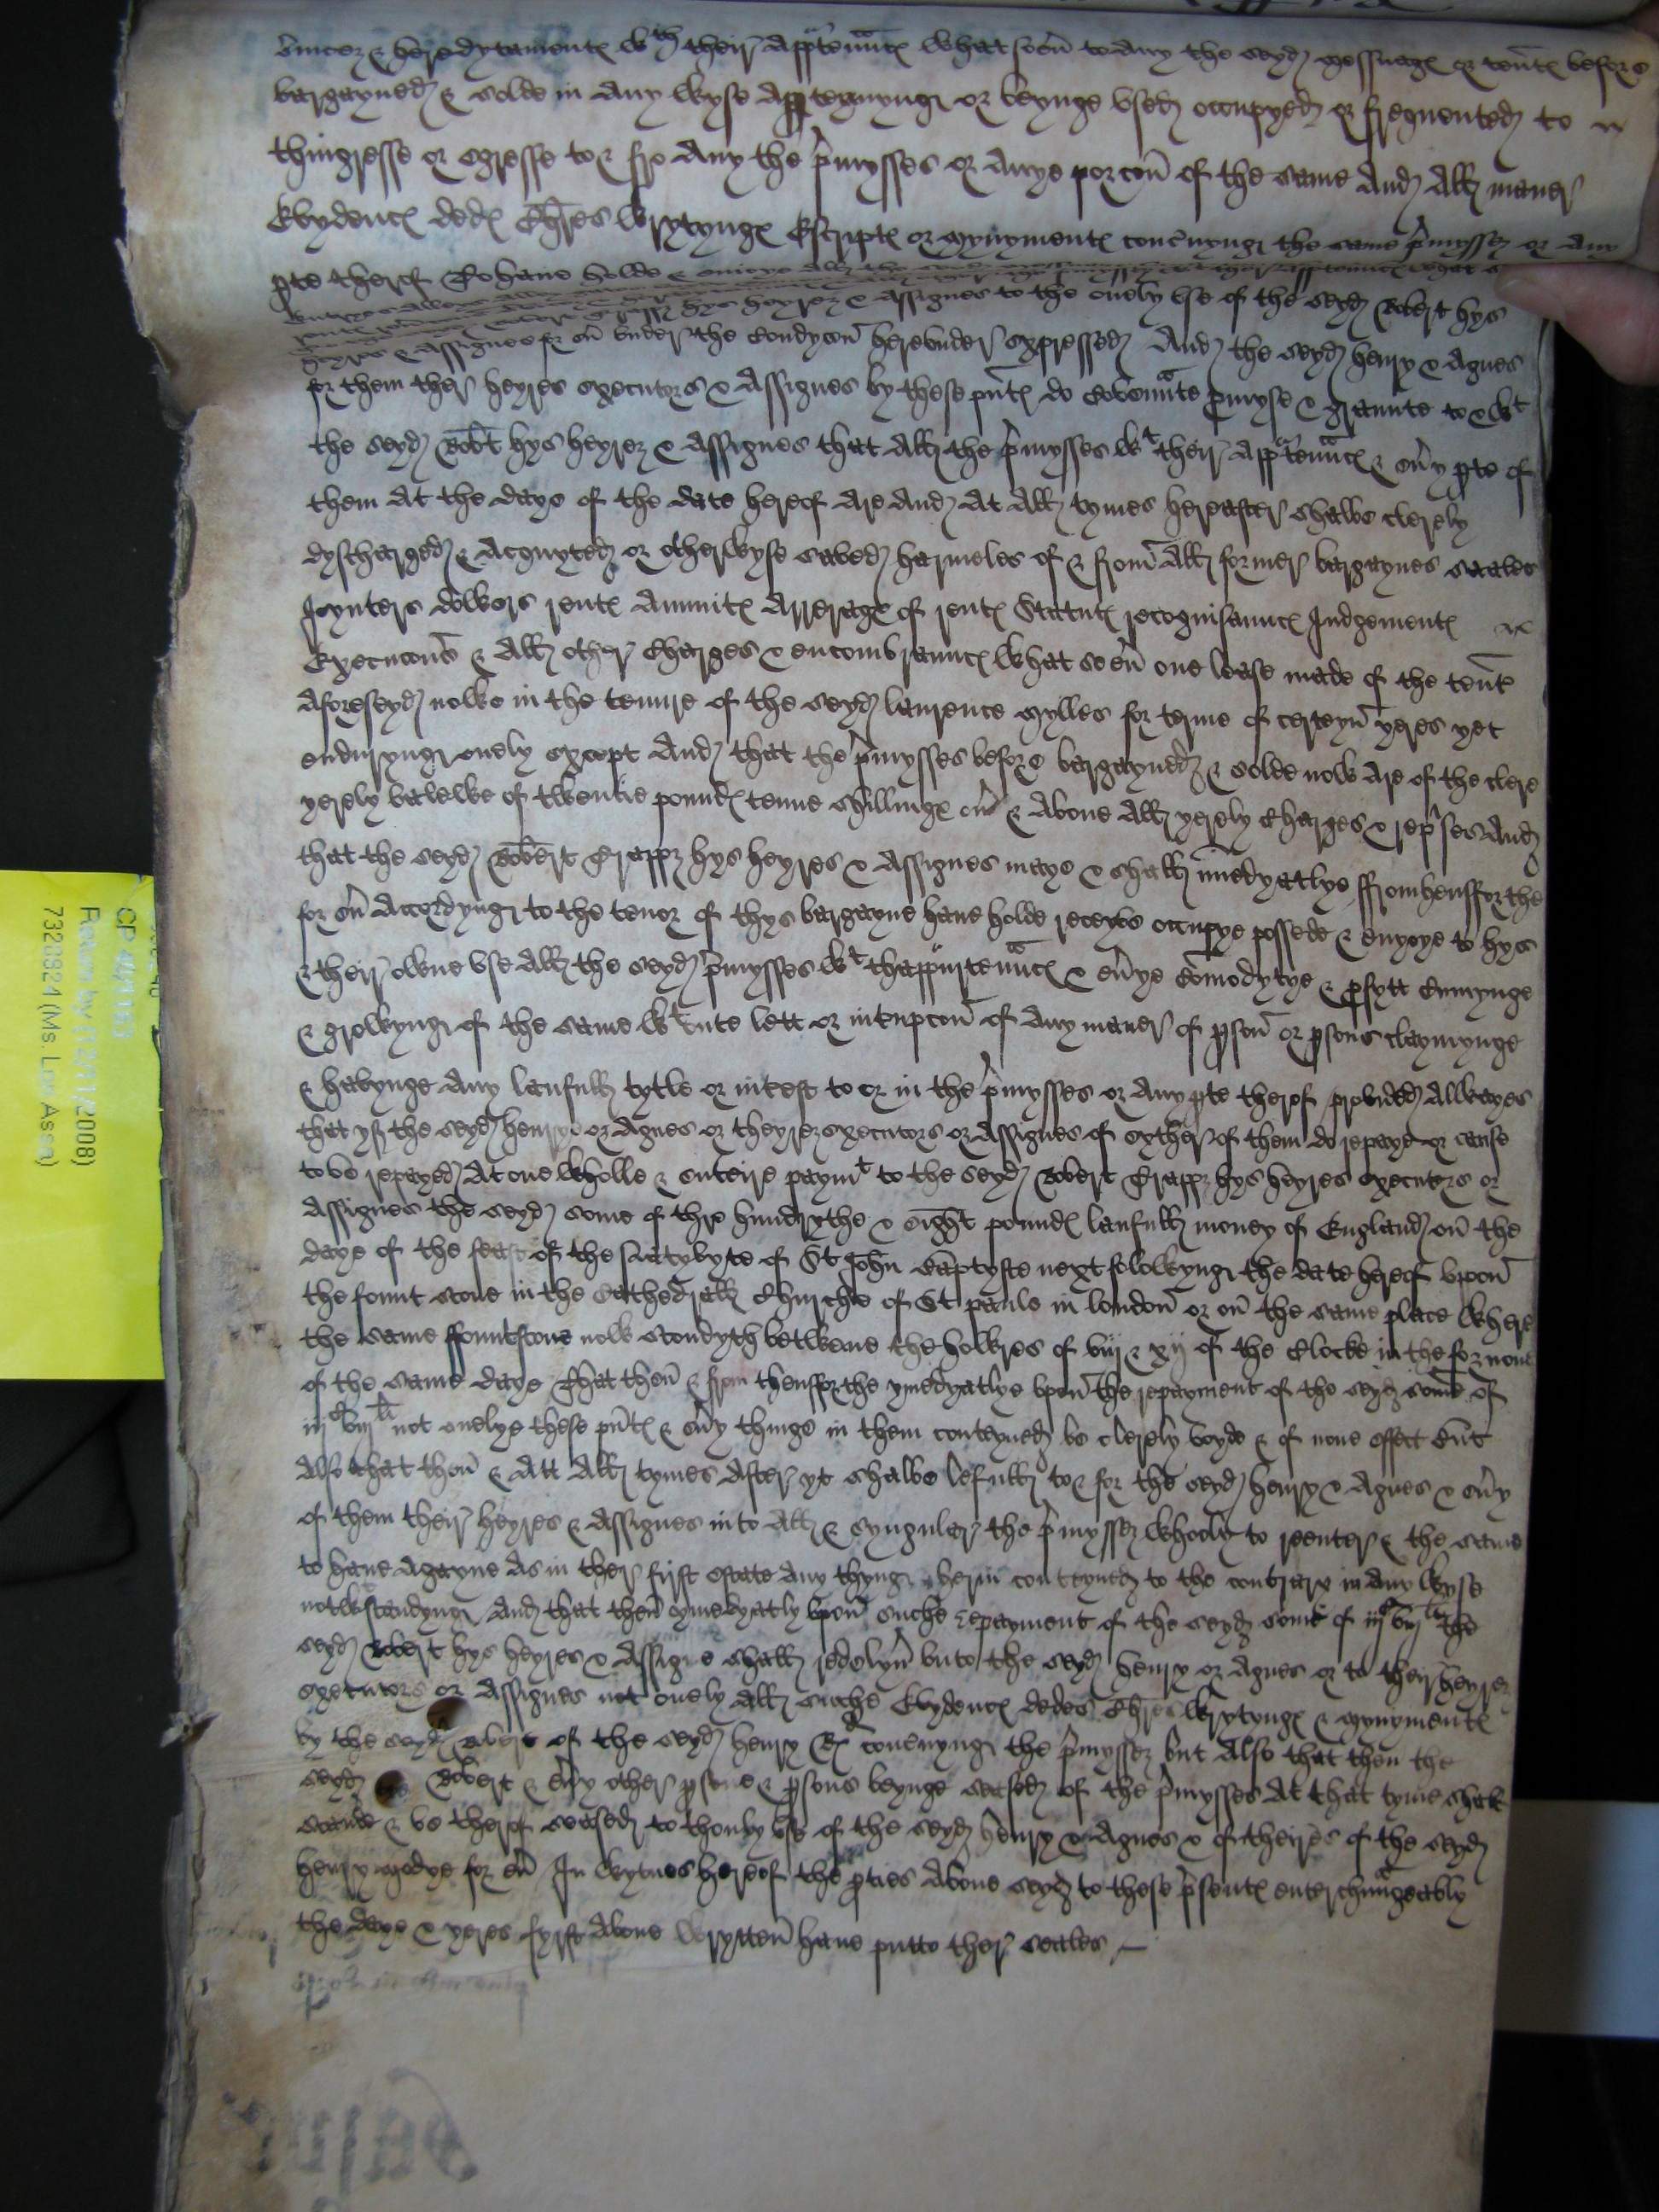 & heredytamentes wth their appurtenaunces whatsoever to any the seyd messuages or tentes before
bargayned & solde in any wyse apperteynyng or beynge used occupyed or frequented to
thingresse or egresse to & fro any the pmysses or anye porcon of the same And all maner
Evydences dedes Chres wrytynges Escriptes or mynymentes concernyng the same pmysses or any
pte therof To have holde & enioye all the
hys heyres & assignes to the onely use of the seyd Robert hys
heyres & assignes for ever under the Condycon hereunder expressed And the seyd henry & Agnes
for them ther heyres executors & assignes by these pntes do Covennte promyse & graunte to & wt
the seyd Robt hys heyres & assignes that all the pmysses wt their apptenaunces & every pte of
them at the daye of the date hereof are and at all tymes hereafter shalbe clerely
dyscharged & acquyted or otherwyse saved harmeles of & from all former bargaynes seales
Joynters dowers rentes annuites arrerages of rentes Statutes recognisaunces Judgementes
Execucons & all other Charges & encombraunces whatsoever one lease made of the tente
aforeseyd nowe in the tenure of the seyd laurence mylles for terme of certeyn yeres yet
enduryng onely except And that the pmysses before bargayned & solde now are of the clere
yerely valewe of twentie poundes tenne shillinges over & above all yerely Charges & reprises And
that the seyd Robert Trapps hys heyres & assignes maye & shall imedyatlye ffromhensfforthe
for ever accordyng to the tenor of thys bargayne have holde receyve occupye possede & enyoye to hys
& their owne use all the seyd pmysses wt thappurtenaunces & everye Comodytye & profytt Comynge
& growyng of the same wtoute lett or interupcon of any maner of pson or psons claymynge
& havynge any laufull tytle or interest to or in the pmysses or any pte therof provided allwayes
that yf the seyd henry or Agnes or theyres executors or assignes of eyther of them do repaye or cause
to be repayed at one wholle & enteire paymt to the seyd Robert Trapps hys heyres executors or
assignes the seyd some of thre hundrythe & eight poundes laufull money of England on the
daye of the feast of the natyvyte of St John Baptyste next folowyng the date hereof upon
the fount stone in the Cathedrall Churche of St paule in london or on the same place where
the same ffountstone now stondyth betwene the howres of viij & xij of the Clocke in the fornone
of the same daye That then & from thensfforthe ymedyatlye upon the repayment of the seyd some of
iijC viijli not onelye these pntes & every thinge in them conteyned be clerely voyde & of none effect But
also that then & att all tymes after yt shalbe lefull to & for the seyd henry & Agnes & every
of them their heyres & assignes into all & synguler the pmysses wholy to reenter & the same
to have agayne as in ther fyrst estate any thyng herin conteyned to the contrary in any wyse
notwtstandyng And that then ymedyatly upon suche repayment of the seyd some of iijC viijli the
seyd Robert hys heyres & assigne shall redelyver unto the seyd henry or Agnes or to their heyres
executors or assignes not onely all suche Evydences dedes Chres wrytynges & mynymentes
by the seyd Robert of the seyd henry concernyng the pmysses but also that then the
seyd Robert & every other psone & psons beynge seased of the pmysses at that tyme shall
stande & be therof seased to thonly use of the seyd henry & Agnes & of theires of the seyd
henry for ever In wytnes hereof the pties above seyd to these psentes enterchaungeably
the daye & yeres fyrst above wrytten have putte ther seales
CP 40/1153
Return by (12/11/2008)
7320924 (Ms. Lov Assn)